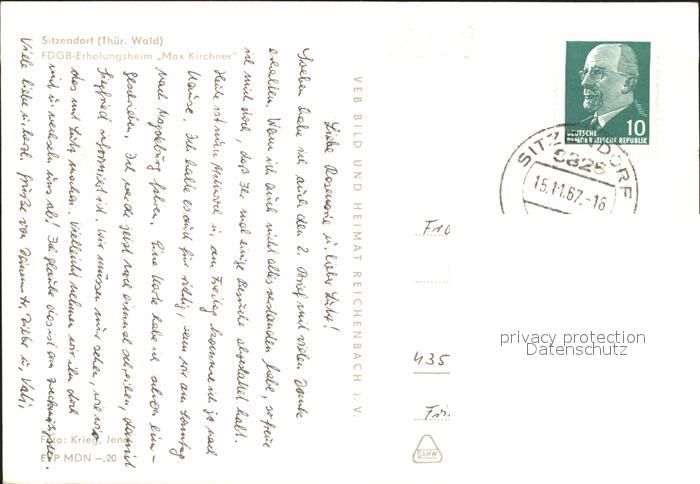 Sitzendorf (Thür. Wald)
FDGB-Erholungsheim „Max Kirchner"
Liebe Rosemarie u. lieber Lutz!
Soeben habe ich auch den 2. Brief mit vielen Dank
erhalten. Wenn ich auch nicht alles verstanden habe, so freue
ich mich doch, daß Ihr mal einige Besuche abgestattet habt.
Heute ist nun Mittwoch u. am Freitag komme ich ja nach
Hause. Ich halte es auch für richtig, wenn wir am Sonntag
nach Magdeburg fahren. Eine Karte habe ich schon ein-
geschrieben. Ich werde jetzt noch einmal schreiben, damit
Siegfried informiert ist. Wir müssen mal sehen, wie wir
das mit Lutz machen. Vielleicht nehmen wir ihn doch
mit u. wechseln uns ab! Ich glaube das ist am
Viele liebe u. herzl. Grüße von Deinem u. Vati,
VEB BILD UND HEIMAT REICHENBACH i. V.
Foto: Krieg, Jena
EVP MDN –,20
10
DEUTSCHE
DEMOKRATISCHE REPUBLIK
SITZENDORF
9826
15.11.67.-16
435
DAHW
privacy protection
Datenschutz